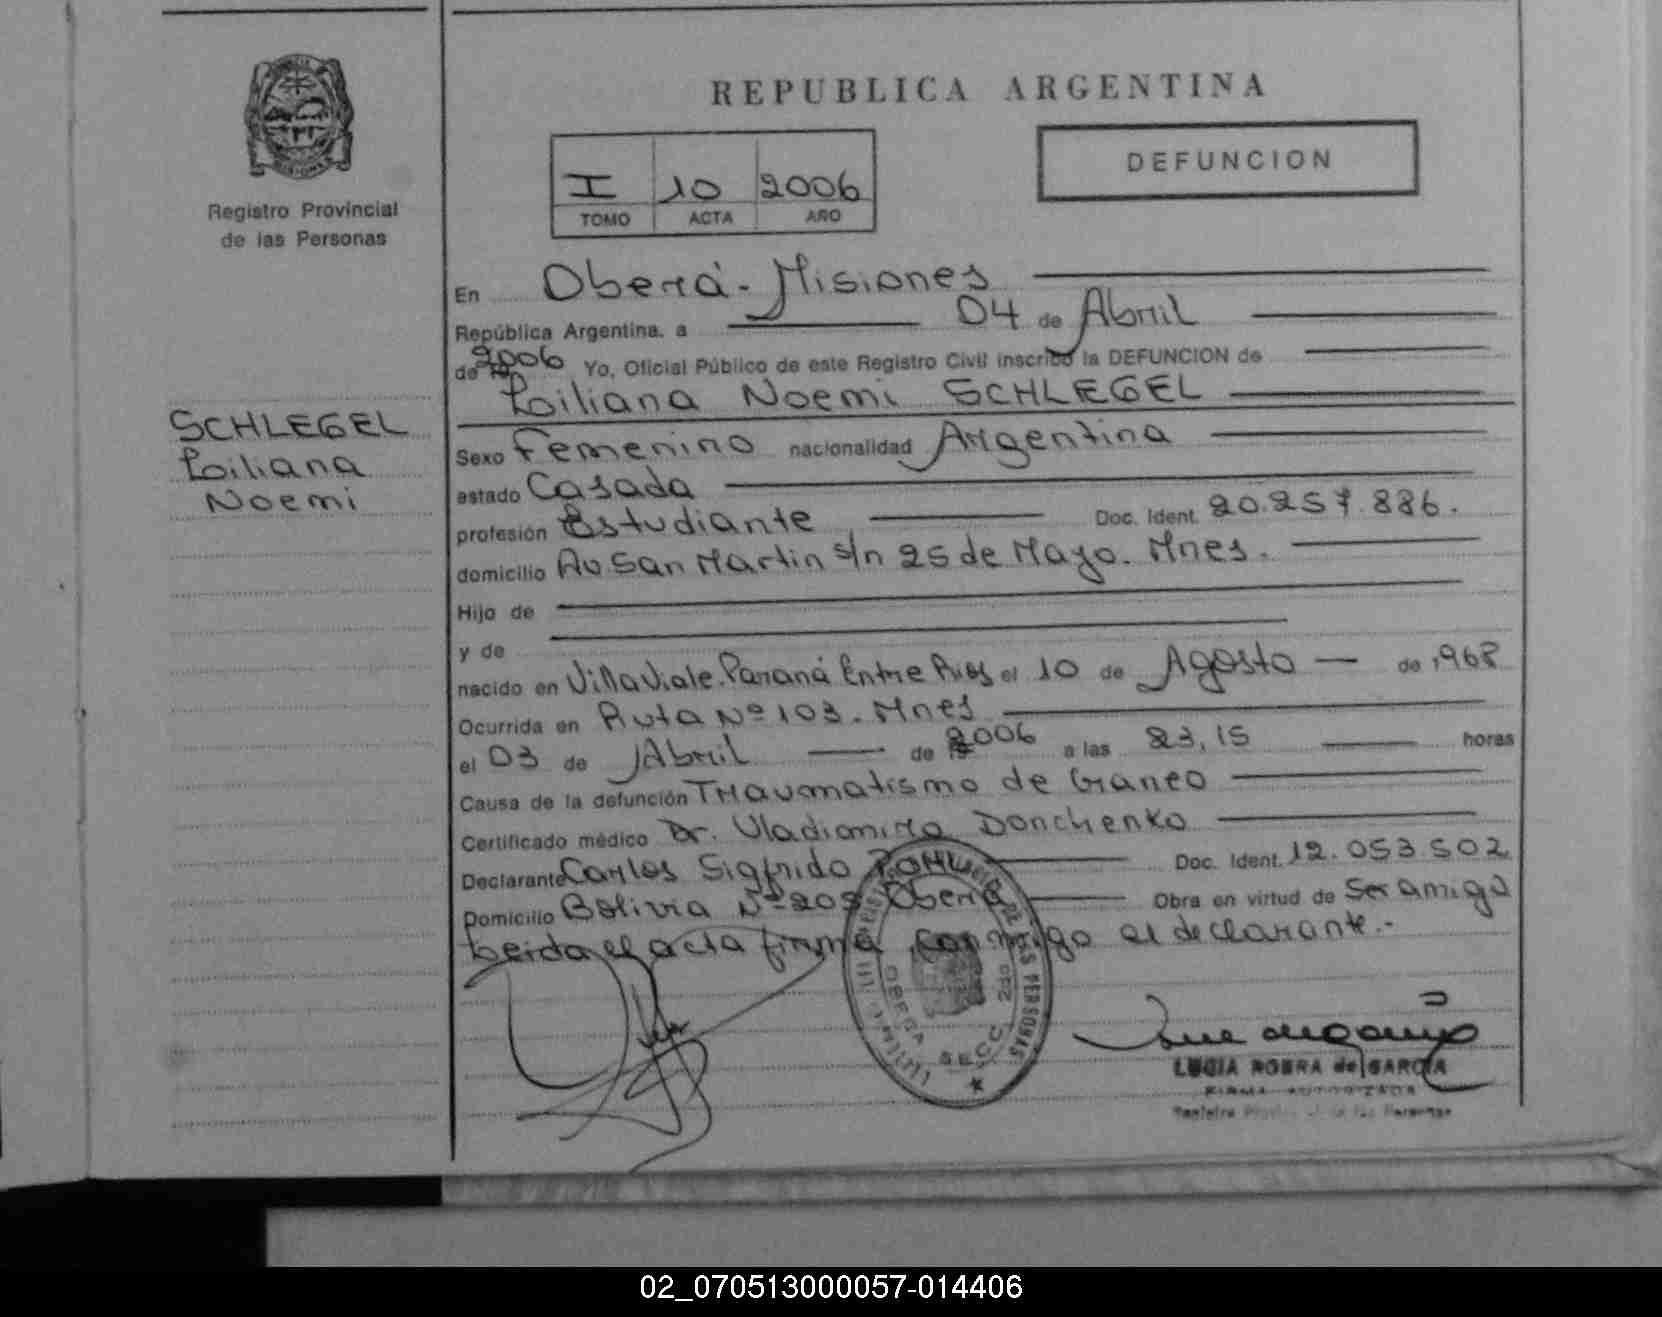 REPUBLICA ARGENTINA
DEFUNCION
I 10 2006
TOMO ACTA AÑO
Registro Provincial
de las Personas
En Oberá - Misiones
República Argentina, a 04 de Abril
de 2006 Yo, Oficial Público de este Registro Civil inscribo la DEFUNCION de
Liliana Noemi SCHLEGEL
SCHLEGEL
Liliana
Noemi
Sexo Femenino nacionalidad Argentina
estado Casada
profesión Estudiante Doc. Ident. 20.257.886.
domicilio Av San Martin s/n 25 de Mayo. Mnes.
Hijo de
y de
nacido en Villa Viale. Paraná Entre Rios el 10 de Agosto de 1968
Ocurrida en Ruta Nº 103. Mnes
el 03 de Abril de 2006 a las 23,15 horas
Causa de la defunción Traumatismo de Craneo
Certificado médico Dr. Vladimiro Donchenko
Declarante Carlos Sigfrido Doc. Ident. 12.053.502
Domicilio Bolivia Nº 209 Oberá Obra en virtud de Ser amigo
Leida el acta firma conmigo el declarante.-
OBERA SECC. 2da
LUCIA ROBRA de GARCIA
FIRMA AUTORIZADA
Registro Provincial de las Personas
02_070513000057-014406